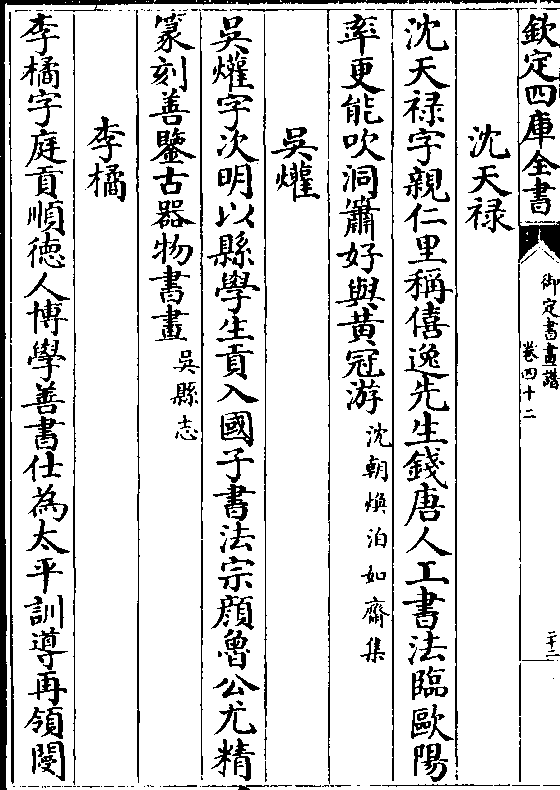 欽定四庫全書
御定書畫譜
卷四十二
二十二
沈天禄
沈天禄字親仁里稱僖逸先生錢唐人工書法臨歐陽
率更能吹洞簫好與黄冠游沈朝煥泊如齋集
吳爟
吳爟字次明以縣學生貢入國子書法宗顔魯公尤精
篆刻善鑒古器物書畫吳縣志
李橘
李橘字庭貢順徳人博學善書仕為太平訓導再領閿